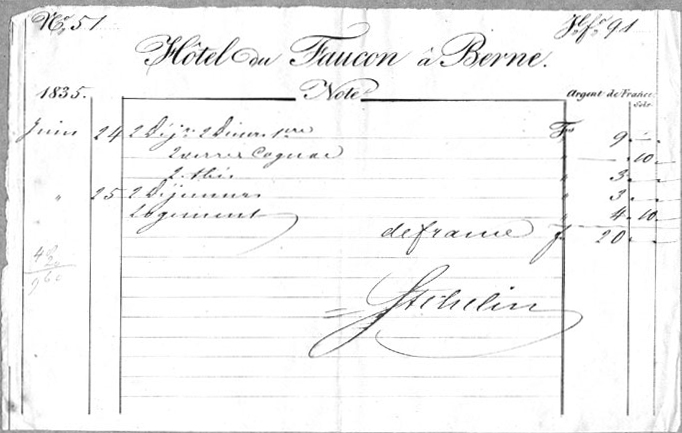 No. 51
Hôtel du Faucon à Berne.
1835. Note Argent de France
Sols.
Juin 24 2 Déj. 2 Diners 1ere Frs 9 . -
2 verres Cognac " - . 10 .
2 thé " 3 . -
" 25 2 Déjeuners " 3 . -
Logement " 4 . 10 .
de france f 20 . -